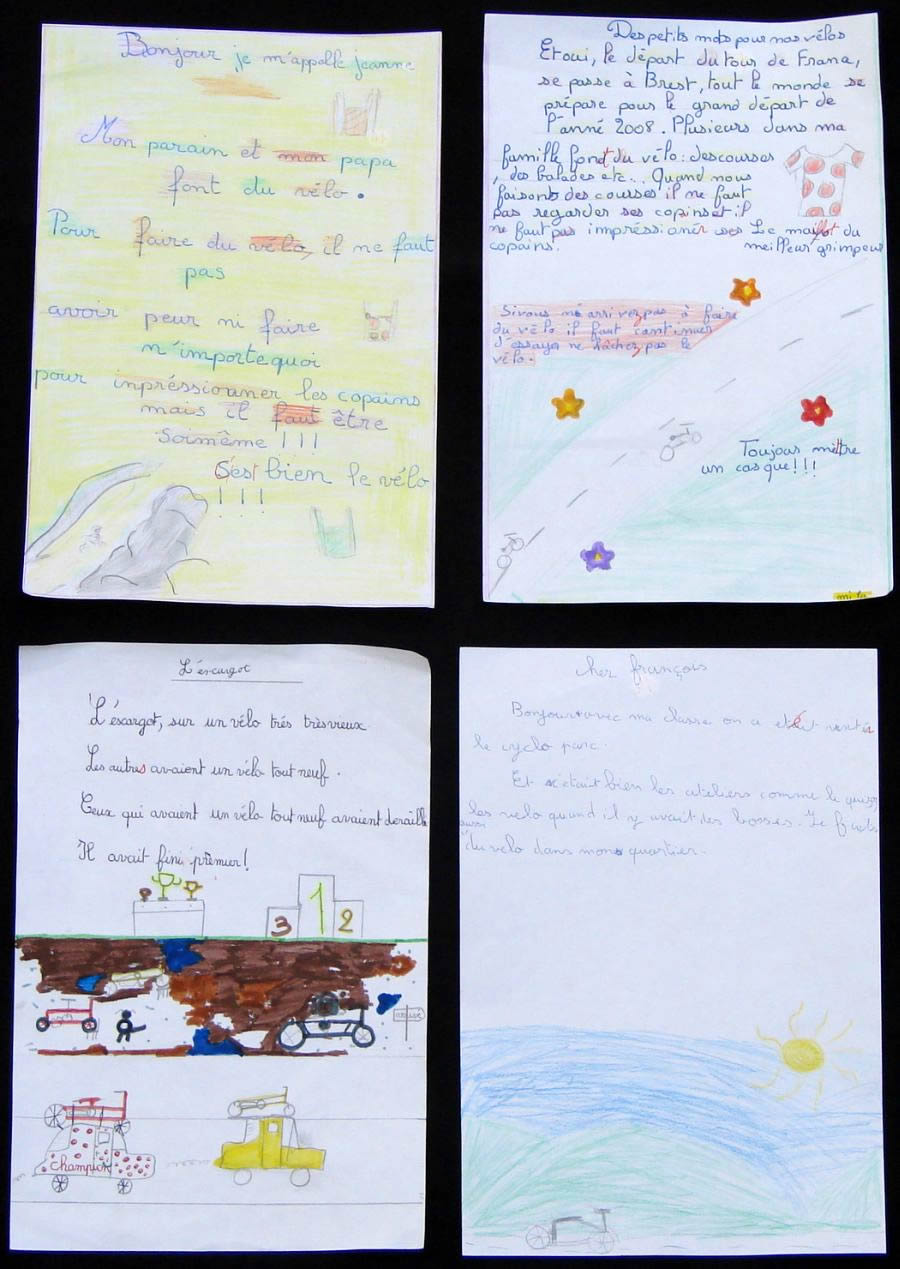 Bonjour je m'appelle jeanne
Mon parain et mon papa
font du vélo.
Pour faire du vélo, il ne faut
pas
avoir peur ni faire
n'importe quoi
pour impréssionner les copains
mais il faut être
soimême !!!
S'est bien le vélo
!!!
Des petits mots pour nos vélos
Et oui, le départ du tour de France,
se passe à Brest, tout le monde se
prépare pour le grand départ de
l'anné 2008. Plusieurs dans ma
famille font du vélo : des courses
, des balades etc... Quand nous
faisons des courses il ne faut
pas regarder ses copins et il
ne faut pas impréssioner ses
copains.
Le maillot du
meilleur grimpeur
Si vous n'arrivez pas à faire
du vélo il faut continuer
d'essayer ne lâchez pas le
vélo.
Toujous mettre
un casque!!!
mila
L'éscargot
L'éscargot, sur un vélo trés très vieux
Les autres avaient un vélo tout neuf.
Ceux qui avaient un vélo tout neuf avaient deraillé
Il avait fini prêmier!
3 1 2
champion
cher françois
Bonjour avec ma classe on a
le cyclo parc.
Et c'était bien les ateliers comme le
les velo quand il y avait des bosses. Je fais
aussi
du velo dans mon quartier.